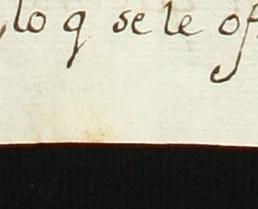 lo q se le of